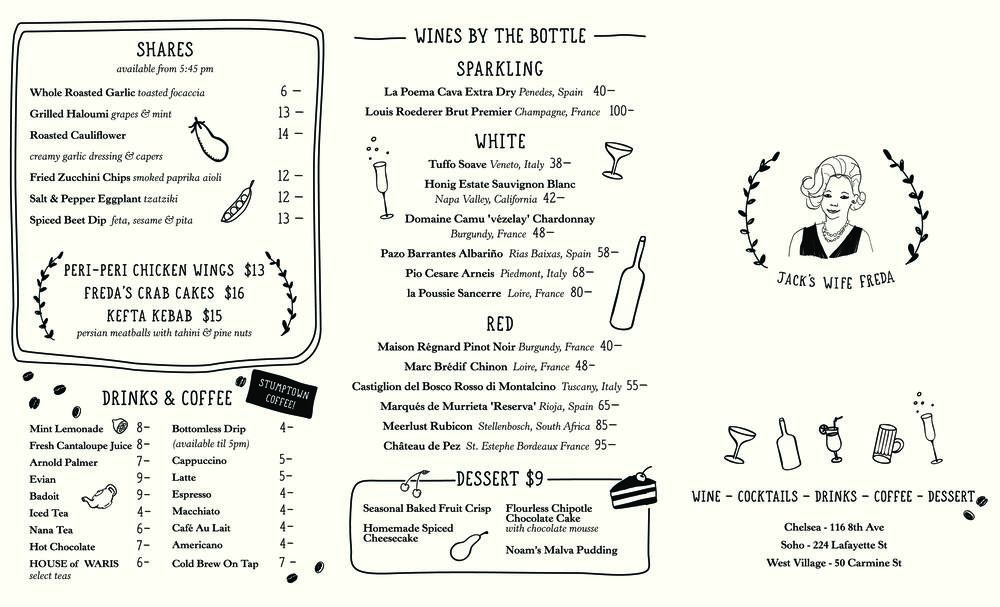 SHARES
available from 5:45 pm
Whole Roasted Garlic toasted focaccia 6 –
Grilled Haloumi grapes & mint 13 –
Roasted Cauliflower 14 –
creamy garlic dressing & capers
Fried Zucchini Chips smoked paprika aioli 12 –
Salt & Pepper Eggplant tzatziki 12 –
Spiced Beet Dip feta, sesame & pita 13 –
PERI-PERI CHICKEN WINGS $13
FREDA'S CRAB CAKES $16
KEFTA KEBAB $15
persian meatballs with tahini & pine nuts
DRINKS & COFFEE
STUMPTOWN
COFFEE!
Mint Lemonade 8–
Fresh Cantaloupe Juice 8–
Arnold Palmer 7–
Evian 9–
Badoit 9–
Iced Tea 4–
Nana Tea 6–
Hot Chocolate 7–
HOUSE of WARIS 6–
select teas
Bottomless Drip 4–
(available til 5pm)
Cappuccino 5–
Latte 5–
Espresso 4–
Macchiato 4–
Café Au Lait 4–
Americano 4–
Cold Brew On Tap 7 –
WINES BY THE BOTTLE
SPARKLING
La Poema Cava Extra Dry Penedes, Spain 40–
Louis Roederer Brut Premier Champagne, France 100–
WHITE
Tuffo Soave Veneto, Italy 38–
Honig Estate Sauvignon Blanc
Napa Valley, California 42–
Domaine Camu 'vézelay' Chardonnay
Burgundy, France 48–
Pazo Barrantes Albariño Rias Baixas, Spain 58–
Pio Cesare Arneis Piedmont, Italy 68–
la Poussie Sancerre Loire, France 80–
RED
Maison Régnard Pinot Noir Burgundy, France 40–
Marc Brédif Chinon Loire, France 48–
Castiglion del Bosco Rosso di Montalcino Tuscany, Italy 55–
Marqués de Murrieta 'Reserva' Rioja, Spain 65–
Meerlust Rubicon Stellenbosch, South Africa 85–
Château de Pez St. Estephe Bordeaux France 95–
DESSERT $9
Seasonal Baked Fruit Crisp
Homemade Spiced
Cheesecake
Flourless Chipotle
Chocolate Cake
with chocolate mousse
Noam's Malva Pudding
JACK'S WIFE FREDA
WINE – COCKTAILS – DRINKS – COFFEE – DESSERT
Chelsea - 116 8th Ave
Soho - 224 Lafayette St
West Village - 50 Carmine St